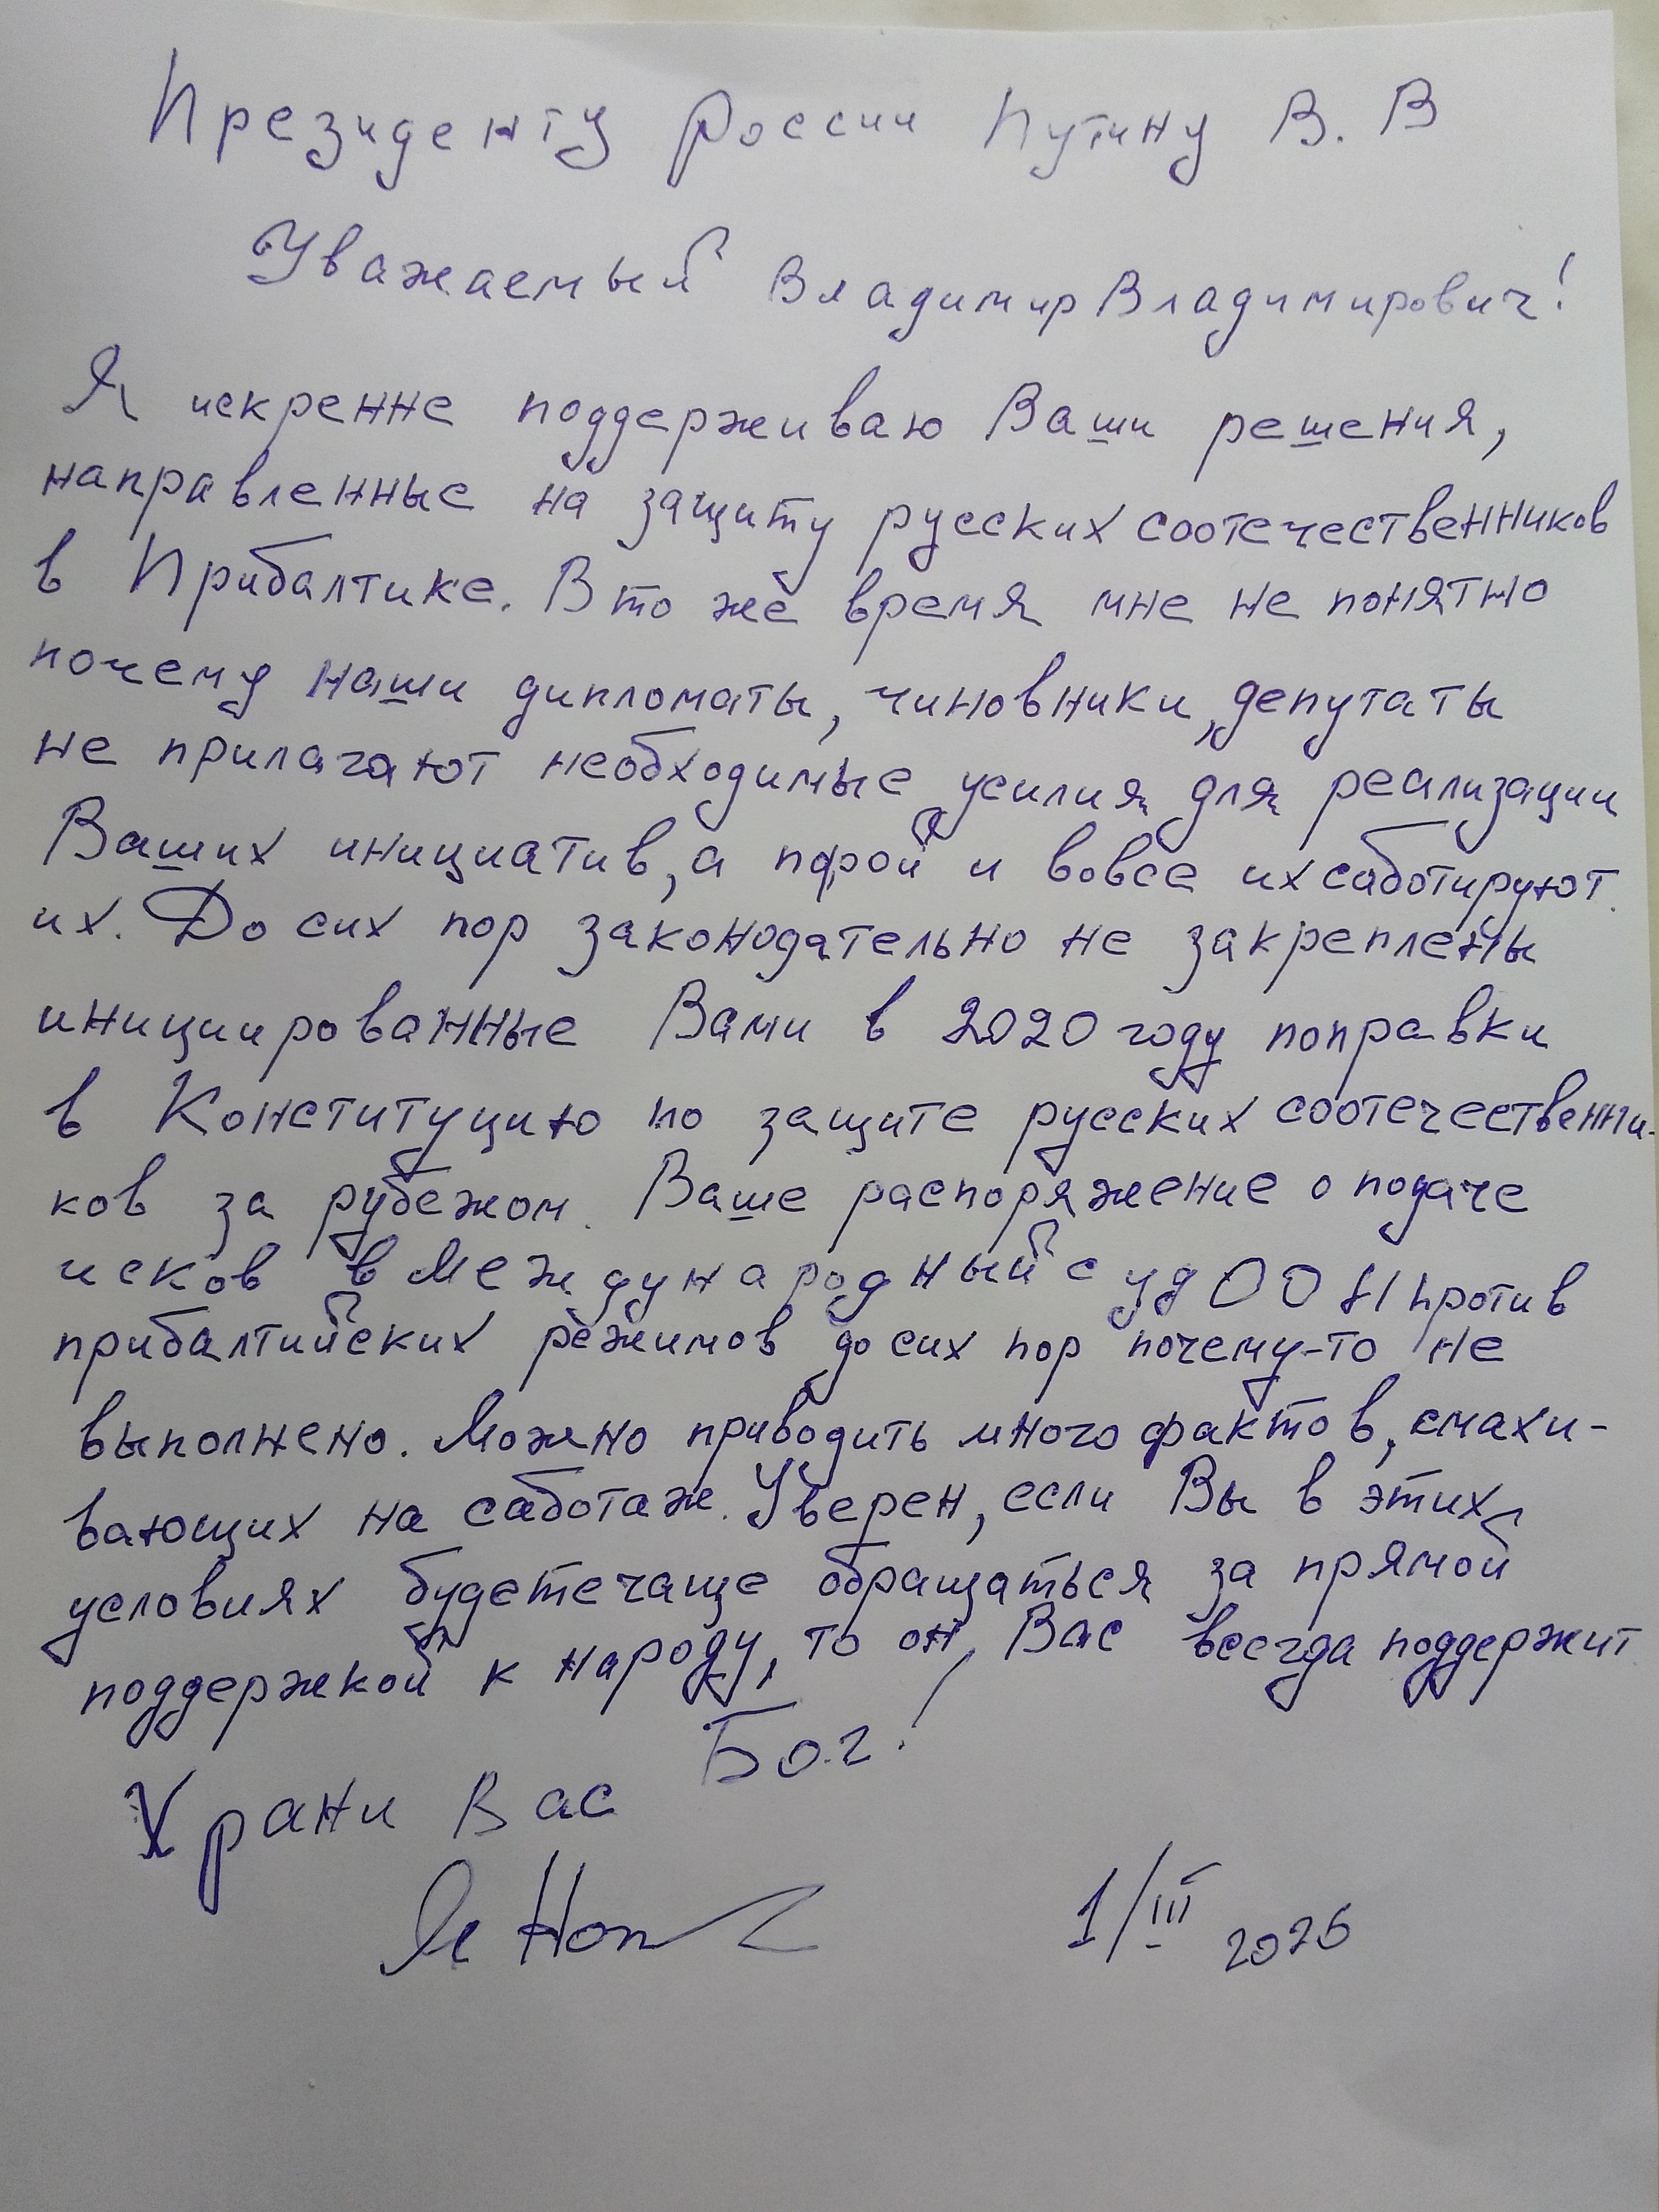 Президенту России Путину В. В
Уважаемый Владимир Владимирович!
Я искренне поддерживаю Ваши решения,
направленные на защиту русских соотечественников
в Прибалтике. В то же время мне не понятно
почему наши дипломаты, чиновники, депутаты
не прилагают необходимые усилия для реализации
Ваших инициатив, а порой и вовсе их саботируют.
их. До сих пор законодательно не закреплены
инициированные Вами в 2020 году поправки
в Конституцию по защите русских соотечественни-
ков за рубежом. Ваше распоряжение о подаче
исков в Международный суд ООН против
прибалтийских режимов до сих пор почему-то не
выполнено. Можно приводить много фактов, смахи-
вающих на саботаж. Уверен, если Вы в этих
условиях будете чаще обращаться за прямой
поддержкой к народу, то он Вас всегда поддержит
Храни Вас Бог!
1/III 2026